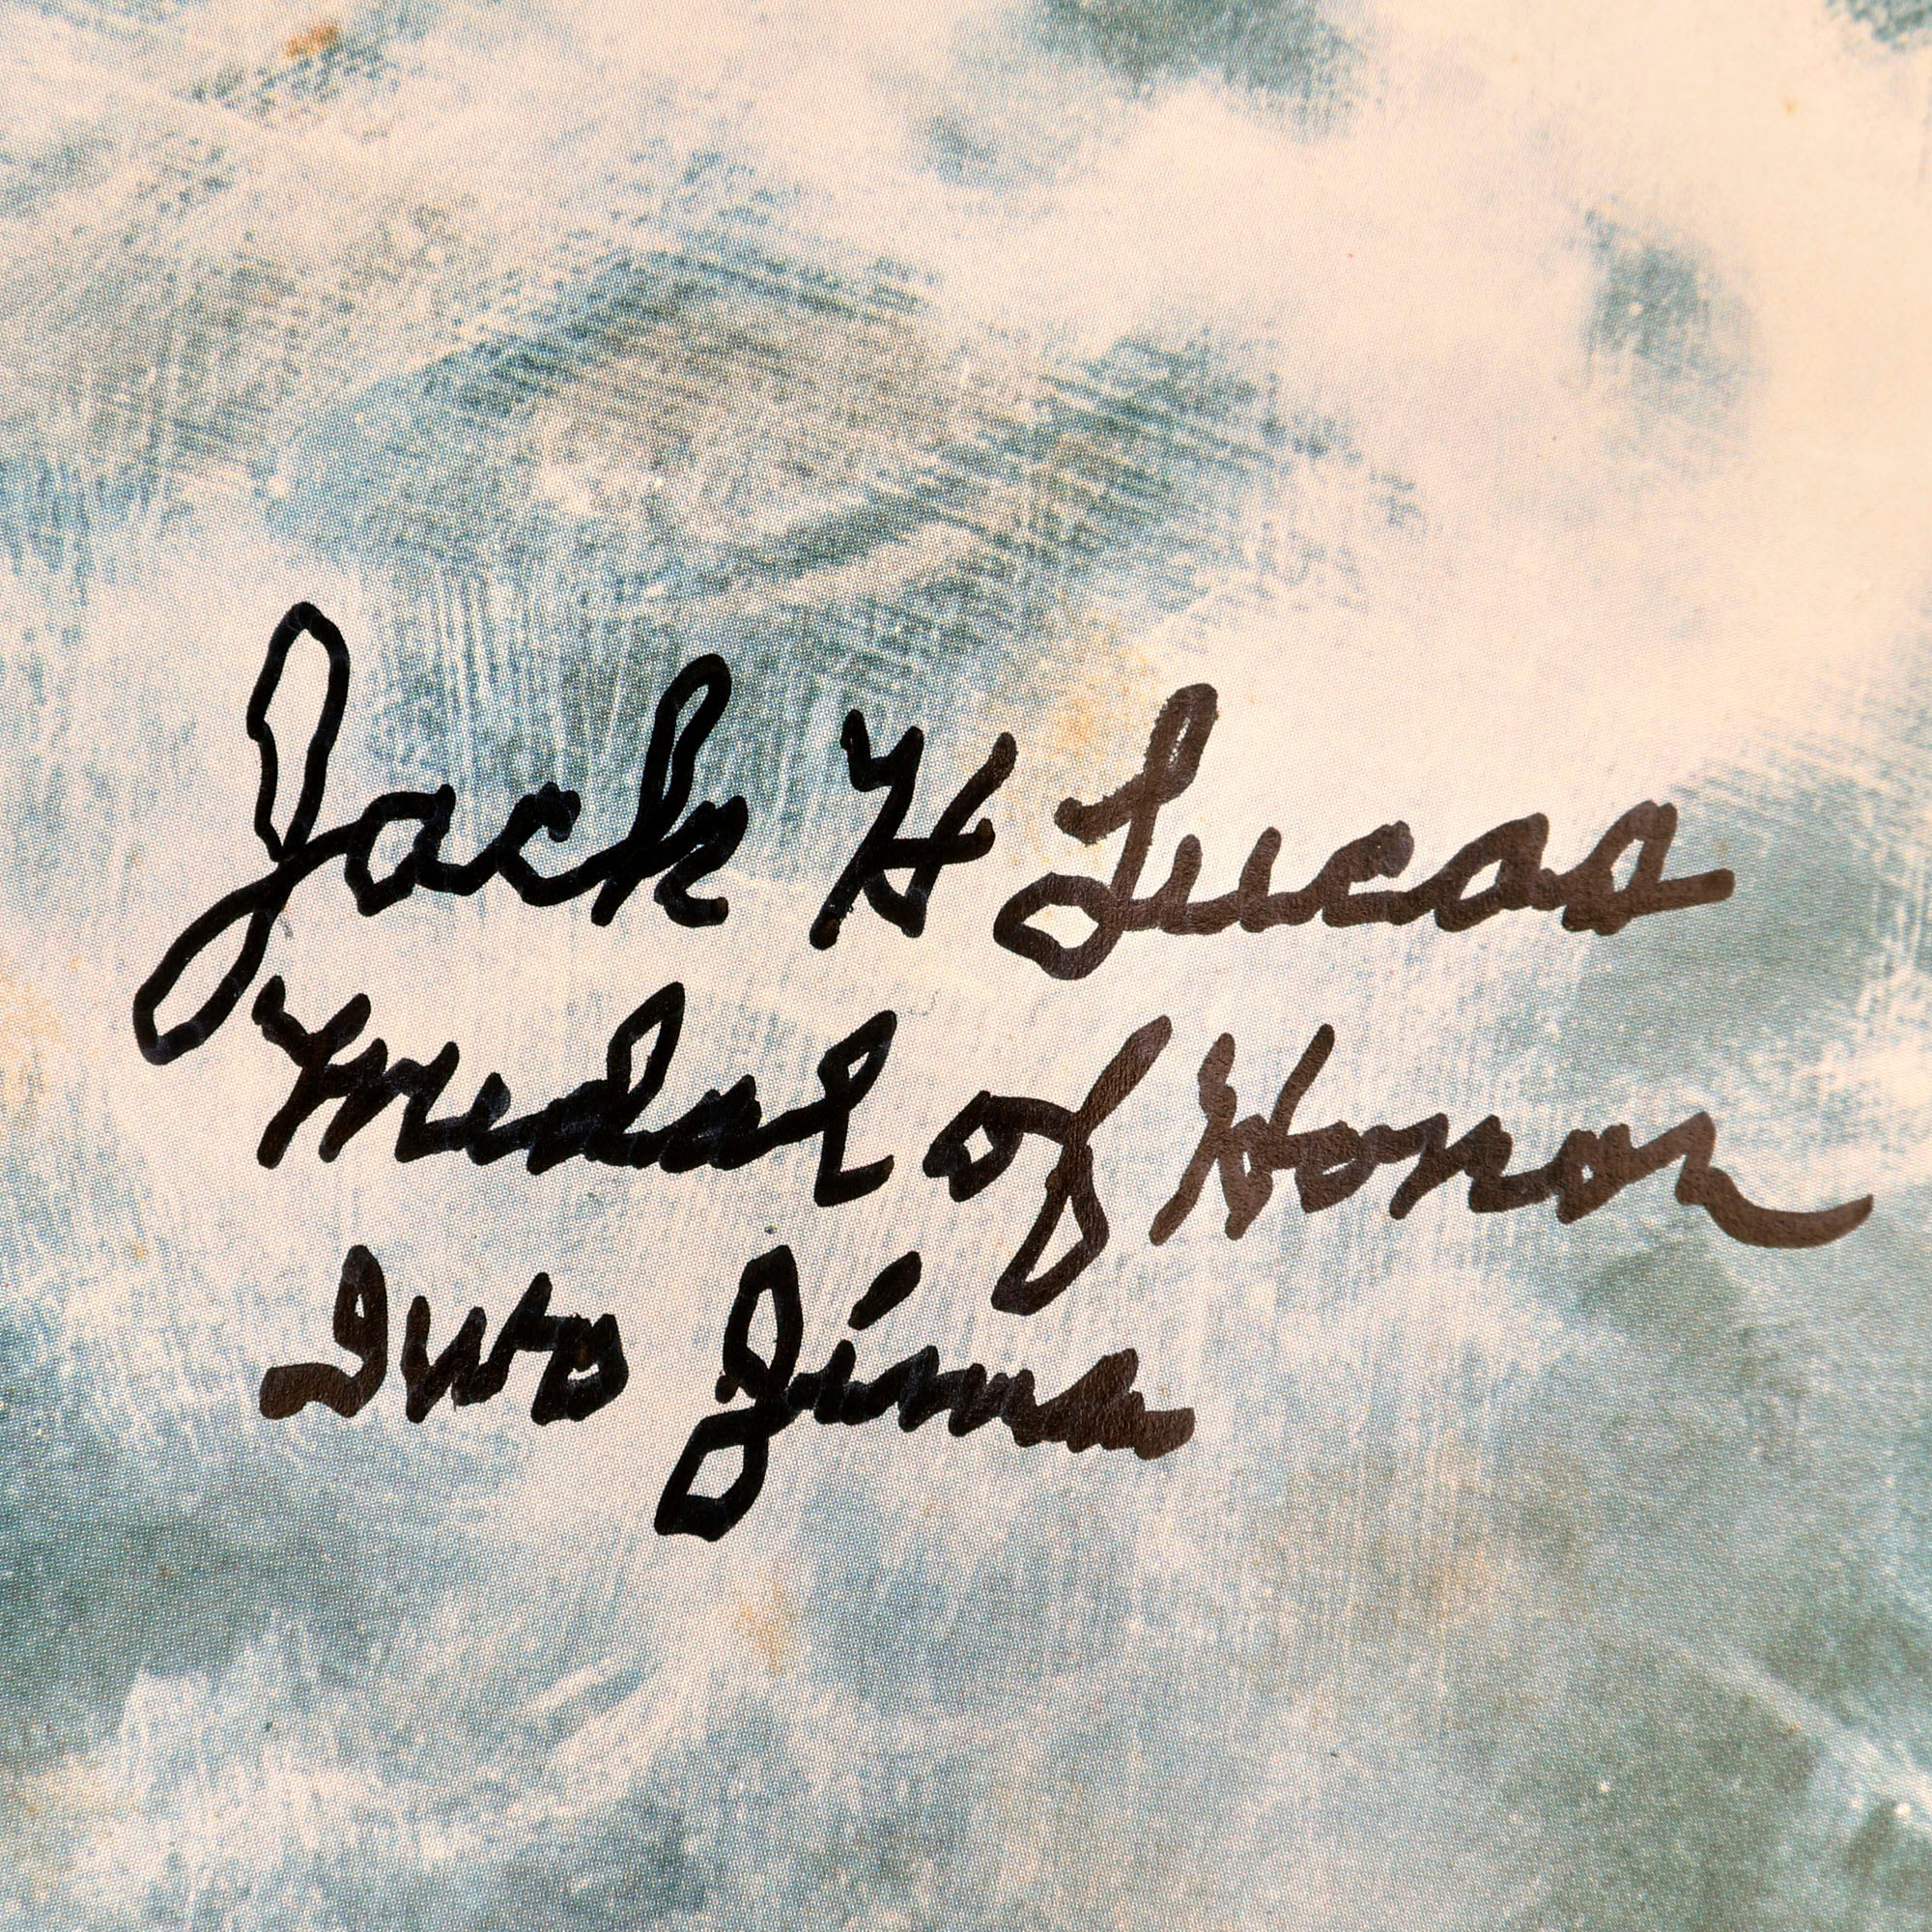 Jack H Lucas
Medal of Honor
Iwo Jima